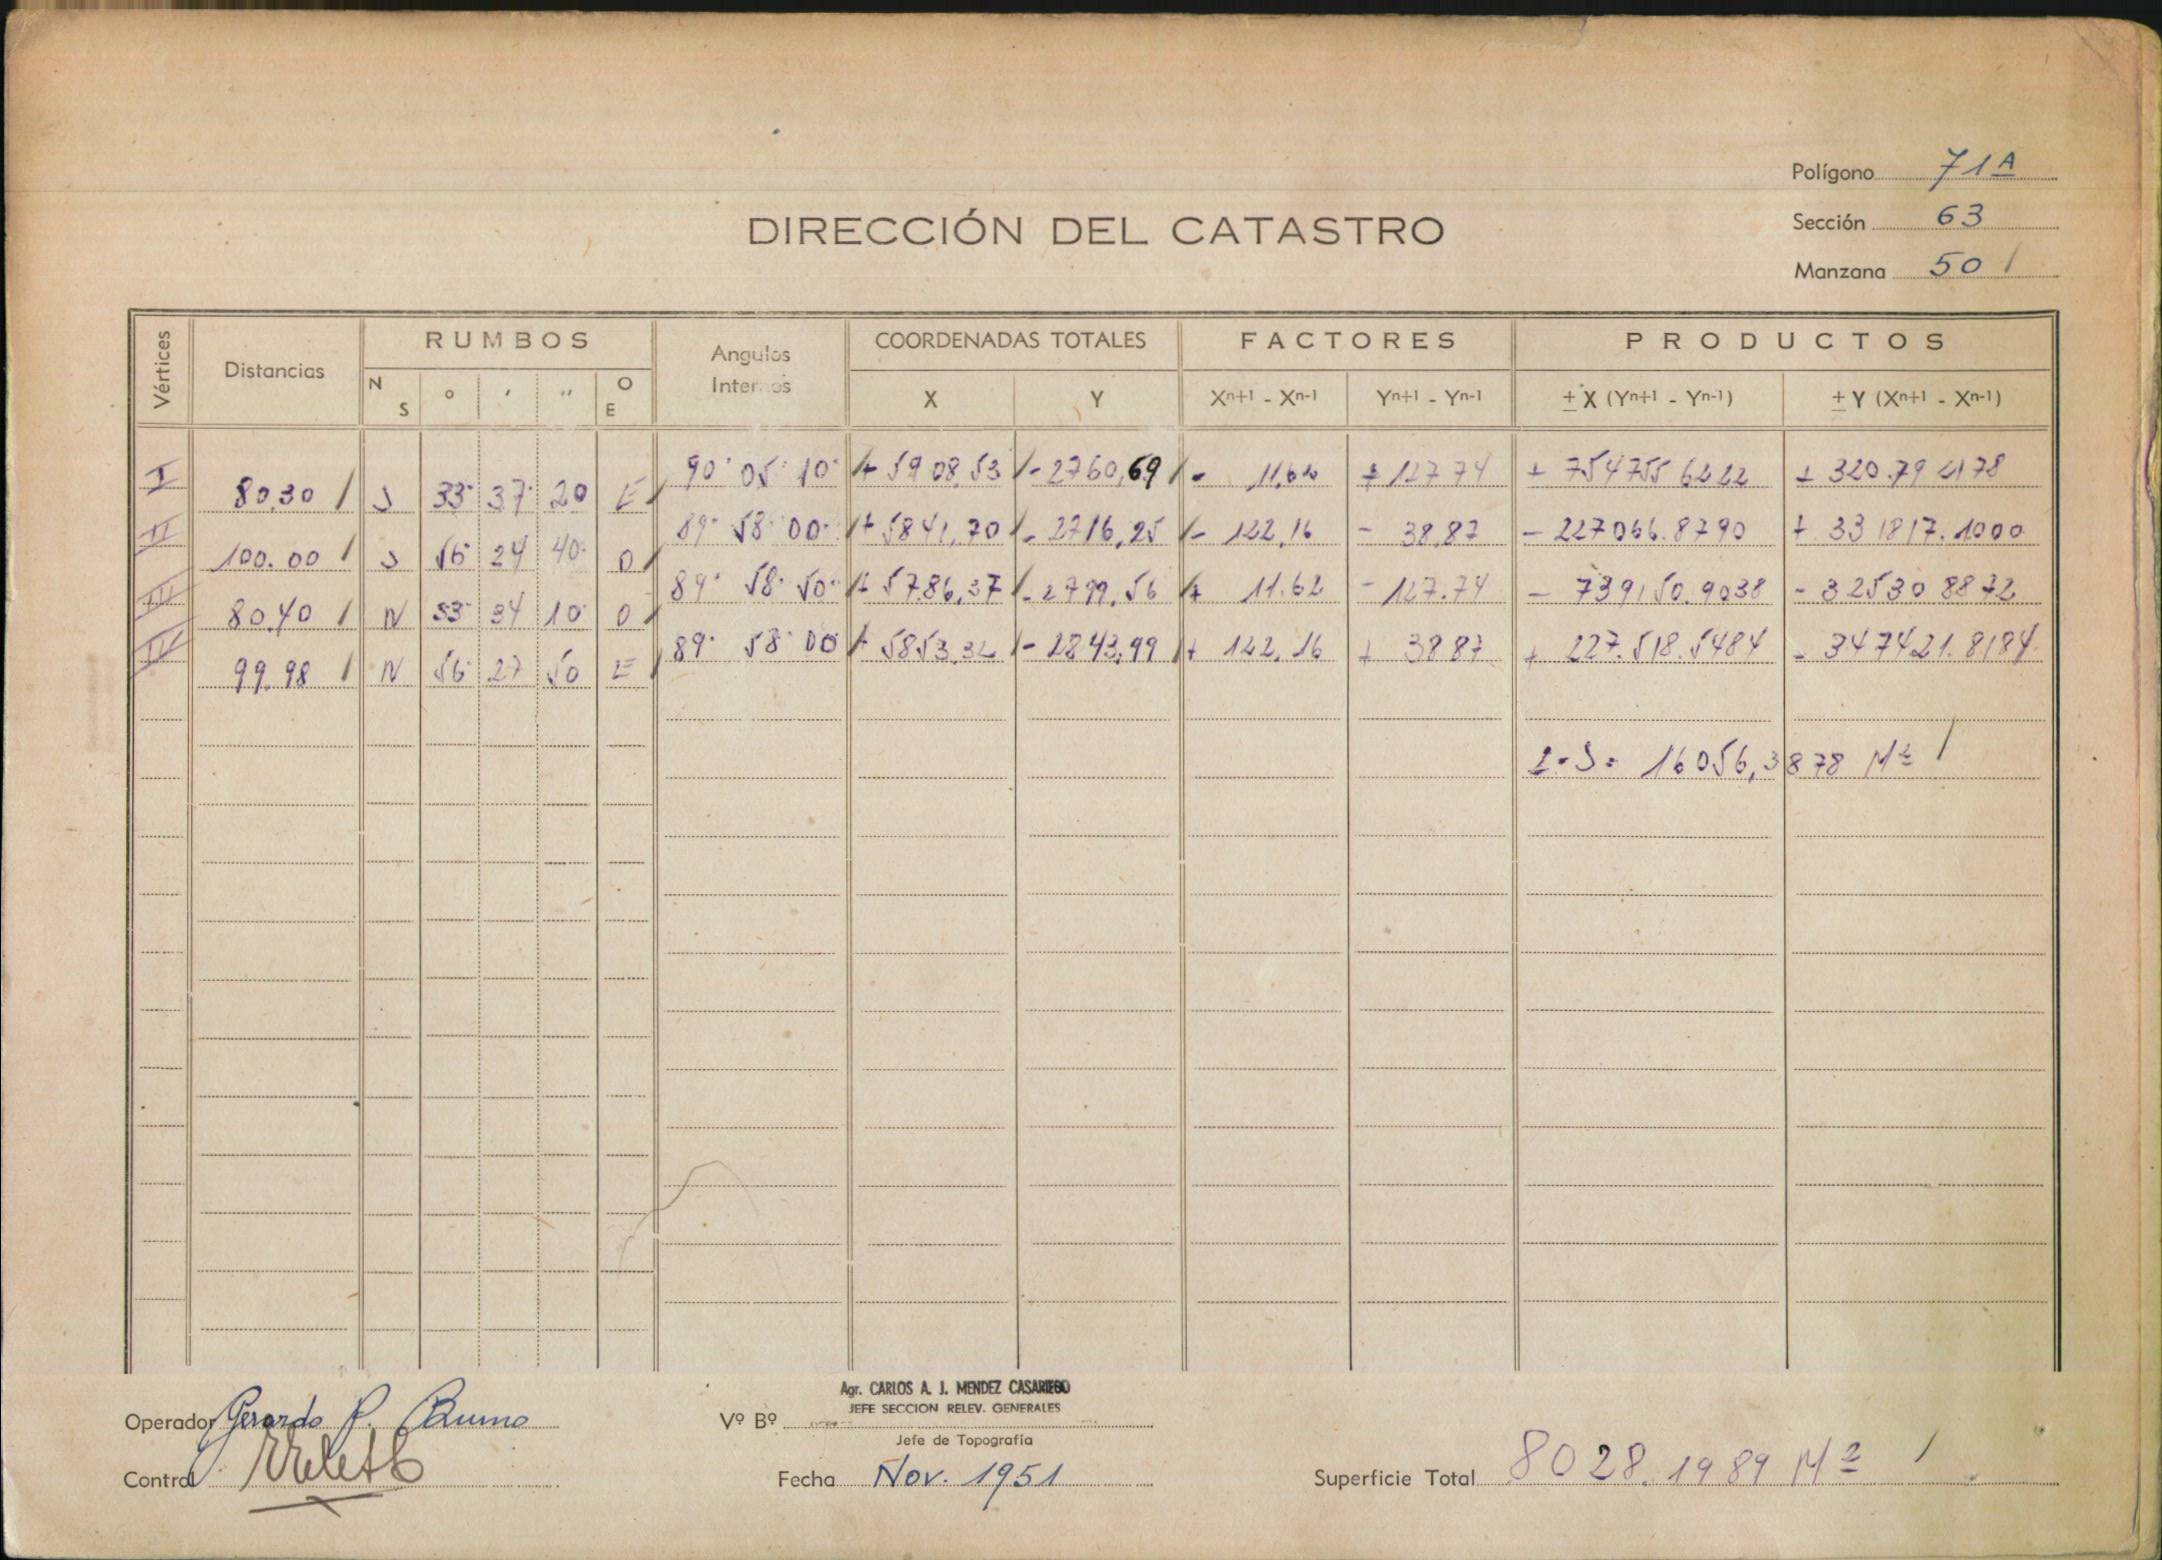 Polígono 71A
Sección 63
Manzana 50 /
DIRECCIÓN DEL CATASTRO
Vértices Distancias RUMBOS Angulos Internos COORDENADAS TOTALES FACTORES PRODUCTOS
N S ° ' '' O E X Y Xn+1 - Xn-1 Yn+1 - Yn-1 ± X (Yn+1 - Yn-1) ± Y (Xn+1 - Xn-1)
I 80.30 / S 33° 37' 20 E / 90° 05' 10" /+ 5908,53 /- 2760,69 / - 11,62 + 127 74 + 754755 6222 + 320.79 2178
II 100.00 / S 56 24 40 O / 89° 58' 00" /+ 5841,70 /- 2716,25 /- 122,16 - 38,87 - 227066.8790 + 331817.1000
III 80.40 / N 33 34 10 O / 89° 58' 50" /+ 5786,37 /- 2799,56 /+ 11.62 - 127.74 - 739150.9038 - 32530 8872
IV 99.98 / N 56 27 50 E / 89° 58' 00 /+ 5853,32 /- 2843,99 / + 122,16 + 38 87 + 227.518.5484 - 347421.8184
2·S = 16056,3878 M² /
Agr. CARLOS A. J. MENDEZ CASARIEGO
JEFE SECCION RELEV. GENERALES
Operador Gerardo P. Bruno Vº Bº
Jefe de Topografía
Control Fecha Nov. 1951 Superficie Total 8028.1989 M² /